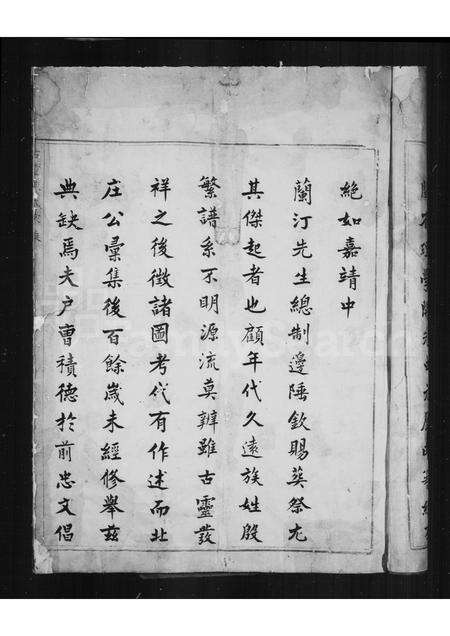 絕如嘉靖中
蘭汀先生總制邊陲欽賜葵祭尤
其傑起者也顧年代久遠族姓殷
繁譜系不明源流莫辨雖古靈發
祥之後徵諸圖考代有作述而北
庄公彙集後百餘歲未經修舉茲
典缺焉夫户曺積德於前忠文倡